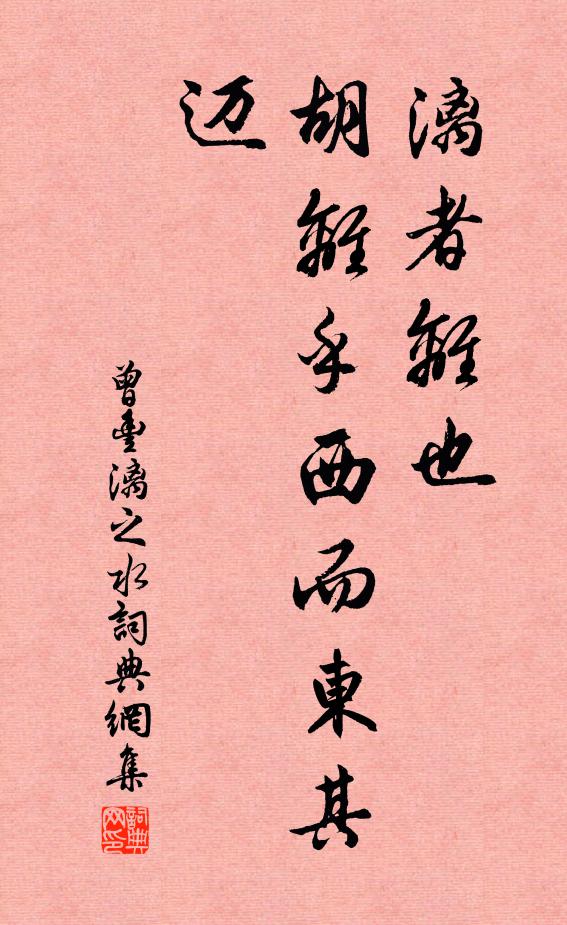 漓者離也
胡離乎西而東其
迈
曾豐漓之水詞典網集
詞典
网印